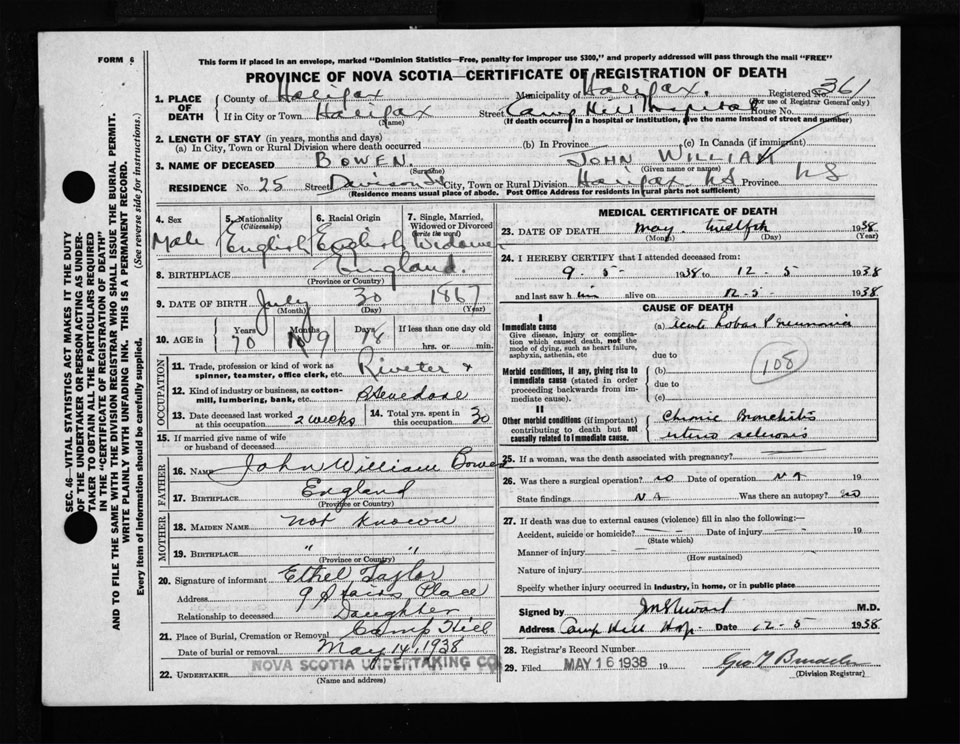 FORM 6
This form if placed in an envelope, marked "Dominion Statistics—Free, penalty for improper use $300," and properly addressed will pass through the mail "FREE"
PROVINCE OF NOVA SCOTIA—CERTIFICATE OF REGISTRATION OF DEATH
Registered No. 361
(For use of Registrar General only)
1. PLACE OF DEATH
County of Halifax Municipality of Halifax.
If in City or Town Halifax (Name) Street Camp Hill Hospital House No.
(If death occurred in a hospital or institution, give the name instead of street and number)
2. LENGTH OF STAY (in years, months and days)
(a) In City, Town or Rural Division where death occurred (b) In Province (c) In Canada (if immigrant)
3. NAME OF DECEASED BOWEN. (Surname) JOHN WILLIAM (Given name or names)
RESIDENCE No. 25 Street City, Town or Rural Division Halifax, NS Province NS
(Residence means usual place of abode. Post Office Address for residents in rural parts not sufficient)
4. Sex Male
5. Nationality (Citizenship) English
6. Racial Origin English
7. Single, Married, Widowed or Divorced (write the word) Widower
8. BIRTHPLACE England. (Province or Country)
9. DATE OF BIRTH July (Month) 30 (Day) 1867 (Year)
10. AGE in Years 70 Months 9 Days If less than one day old hrs. or min.
OCCUPATION
11. Trade, profession or kind of work as spinner, teamster, office clerk, etc. Riveter +
12. Kind of industry or business, as cotton-mill, lumbering, bank, etc. Stevedore
13. Date deceased last worked at this occupation 2 weeks
14. Total yrs. spent in this occupation 30
15. If married give name of wife or husband of deceased
FATHER
16. NAME John William Bowen
17. BIRTHPLACE England (Province or Country)
MOTHER
18. MAIDEN NAME not known
19. BIRTHPLACE " " (Province or Country)
20. Signature of informant Ethel Taylor
Address Place
Relationship to deceased Daughter
21. Place of Burial, Cremation or Removal Camp Hill
Date of burial or removal May 14, 1938
NOVA SCOTIA UNDERTAKING CO.
22. UNDERTAKER (Name and address)
MEDICAL CERTIFICATE OF DEATH
23. DATE OF DEATH May (Month) twelfth (Day) 1938 (Year)
24. I HEREBY CERTIFY that I attended deceased from:
9 - 5 - 1938 to 12 - 5 1938
and last saw him alive on 12-5- 1938
CAUSE OF DEATH
I
Immediate cause
Give disease, injury or complication which caused death, not the mode of dying, such as heart failure, asphyxia, asthenia, etc
(a) Acute Lobar Pneumonia
due to
Morbid conditions, if any, giving rise to immediate cause (stated in order proceeding backwards from immediate cause).
(b)
due to
(c)
108
II
Other morbid conditions (if important) contributing to death but not causally related to immediate cause.
Chronic Bronchitis
sclerosis
25. If a woman, was the death associated with pregnancy?
26. Was there a surgical operation? no Date of operation NA 19
State findings NA Was there an autopsy? no
27. If death was due to external causes (violence) fill in also the following:—
Accident, suicide or homicide? (State which) Date of injury 19
Manner of injury (How sustained)
Nature of injury
Specify whether injury occurred in industry, in home, or in public place
Signed by J M Stewart M.D.
Address Camp Hill Hosp. Date 12-5 1938
28. Registrar's Record Number
29. Filed MAY 16 1938 (Division Registrar)
SEC. 46—VITAL STATISTICS ACT MAKES IT THE DUTY OF THE UNDERTAKER OR PERSON ACTING AS UNDERTAKER TO OBTAIN ALL THE PARTICULARS REQUIRED IN THE "CERTIFICATE OF REGISTRATION OF DEATH" AND TO FILE THE SAME WITH THE DIVISION REGISTRAR WHO SHALL ISSUE THE BURIAL PERMIT.
WRITE PLAINLY WITH UNFADING INK. THIS IS A PERMANENT RECORD.
Every item of information should be carefully supplied. (See reverse side for instructions.)